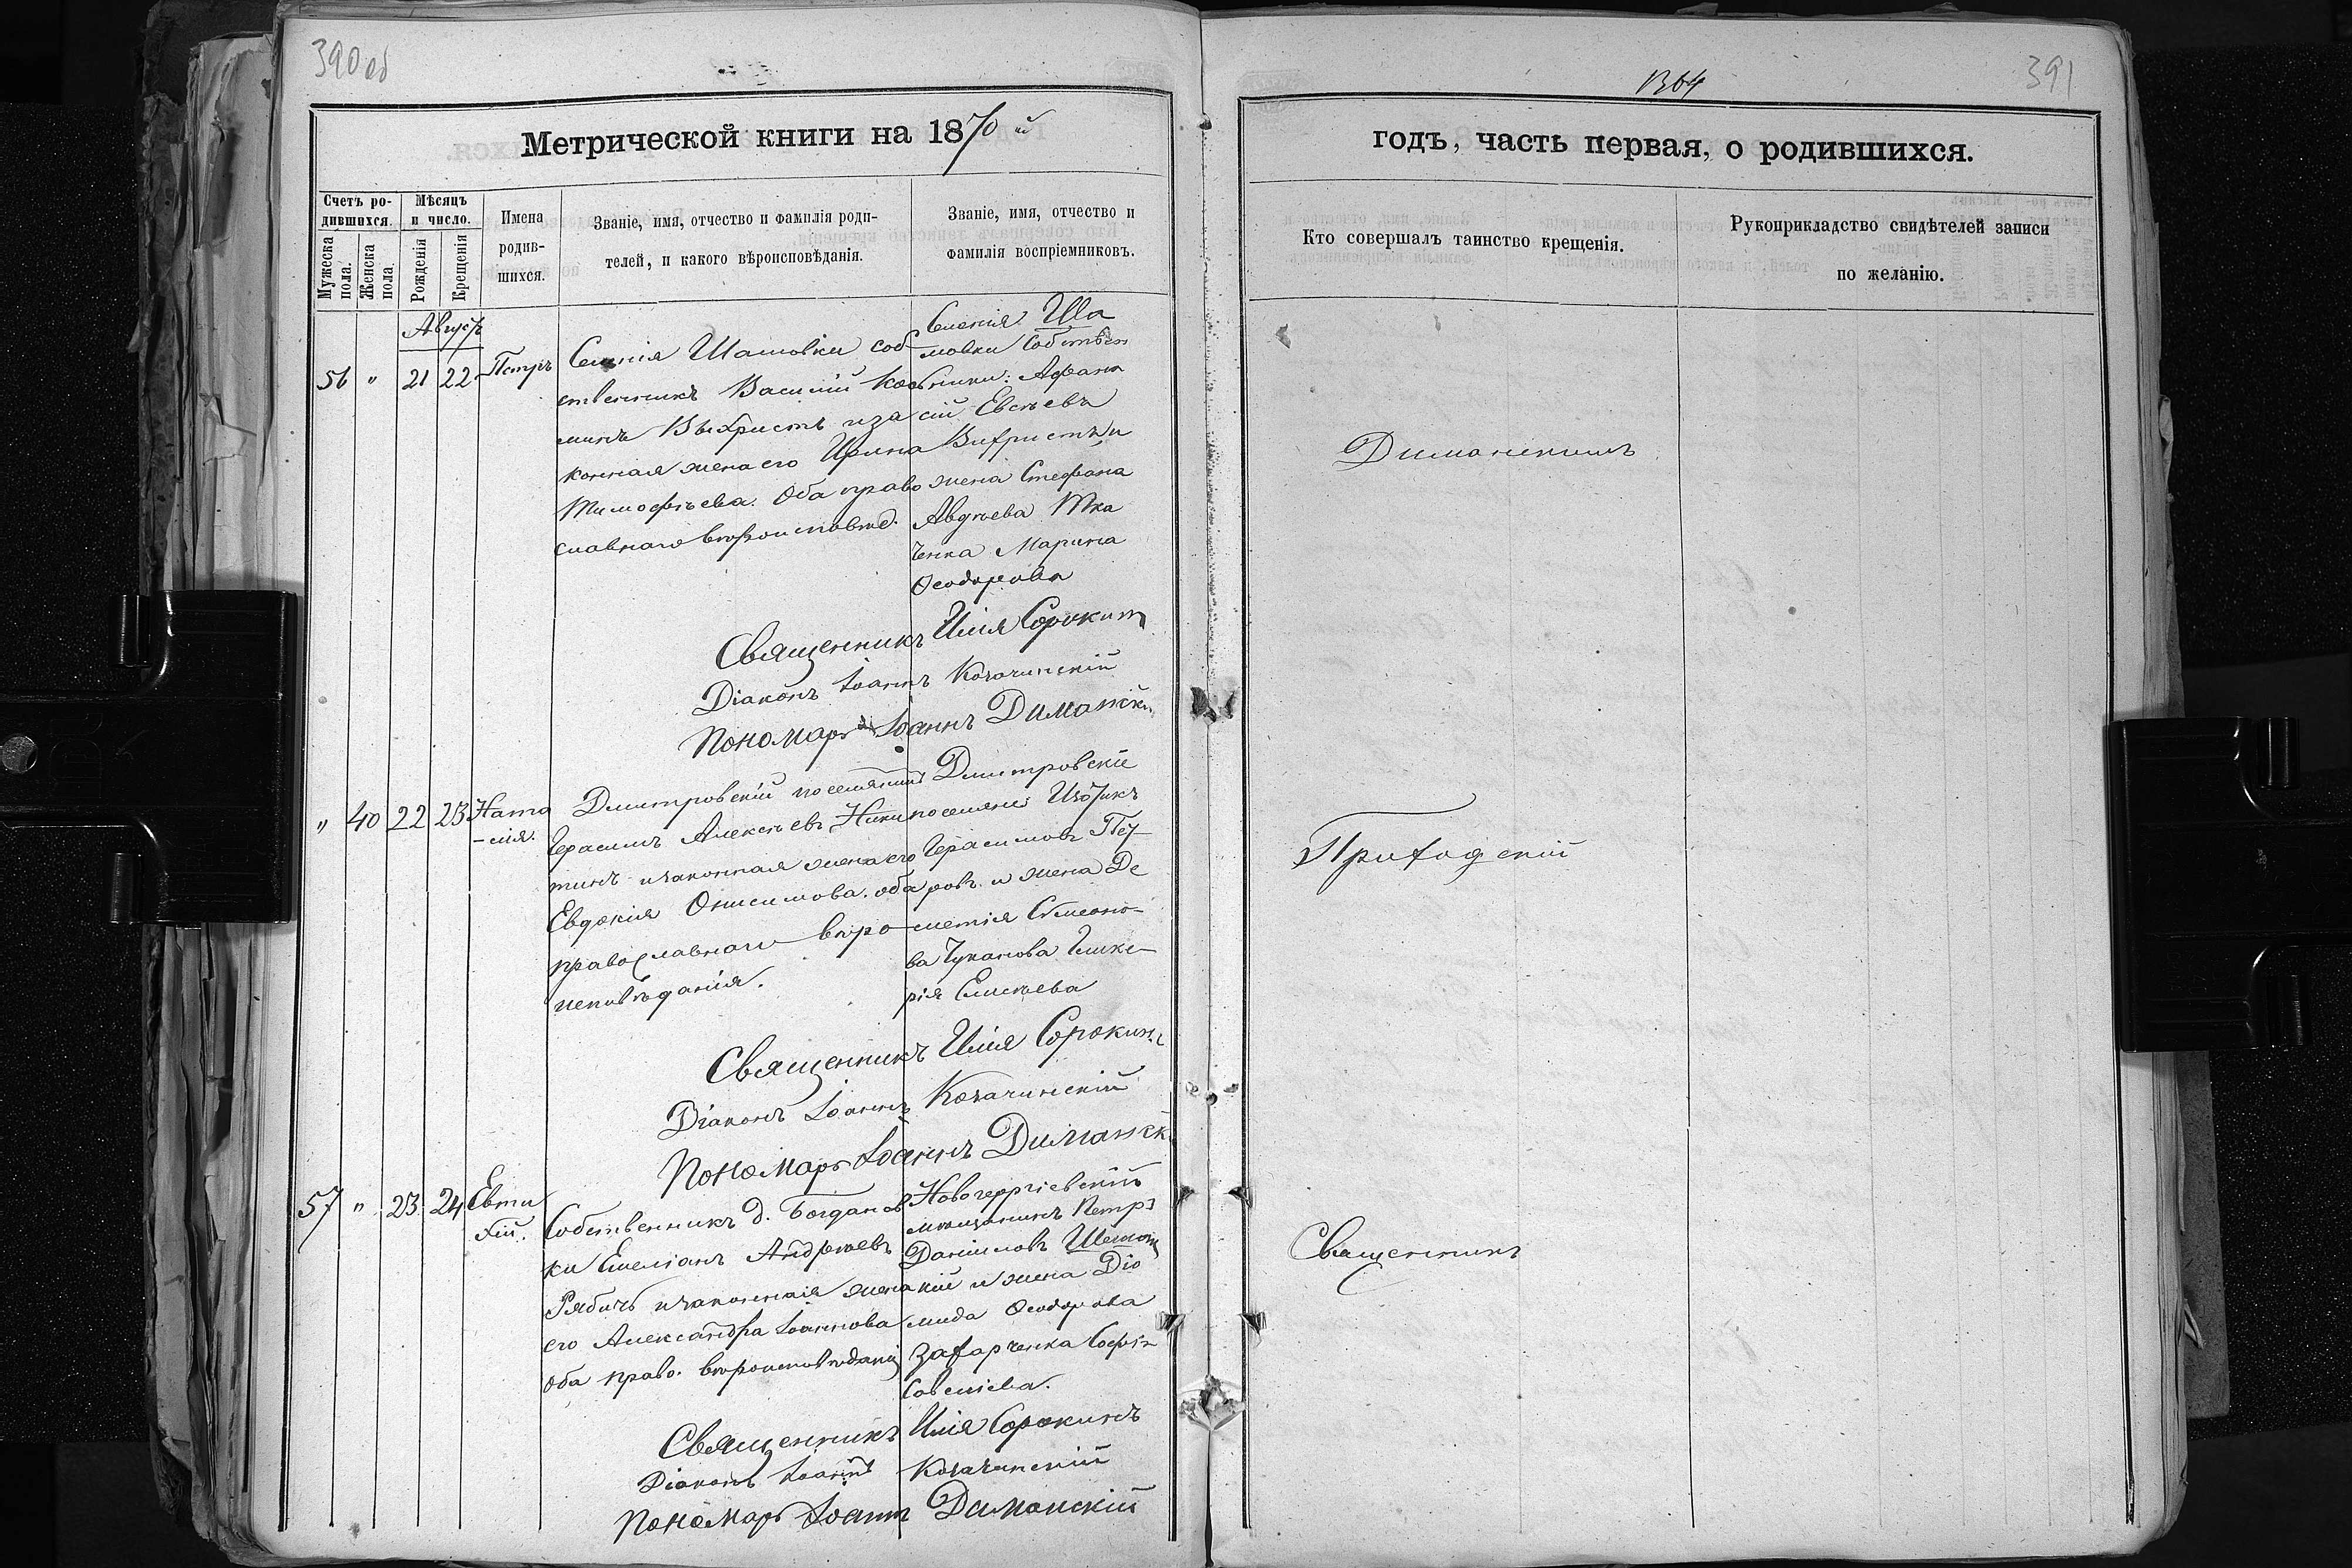 390 об
Метрической книги на 1870й
Счетъ ро-
дившихся.
Мужеска
пола.
Женска
пола.
Мѣсяцъ
и число.
Рожденія
Крещенія
Имена
родив-
шихся.
Званіе, имя, отчество и фамилія роди-
телей, и какого вѣроисповѣданія.
Званіе, имя, отчество и
фамилія воспріемниковъ.
Августъ
56 " 21 22 Петръ
Селенія Шамовки соб
ственникъ Василій
минъ Выхристъ и за
конная жена его Ирина
Тимофѣева. Оба право
славнаго вѣроисповѣд.
Селенія Ша
мовки Собствен
ники: Афана
сій Евсѣевъ
Вихристъ и
жена Стефана
Авдѣева Тка
ченка Марина
Ѳеодорова
Священникъ Илія Сорокинъ
Діаконъ Іоаннъ Козачинскій
Пономарь Іоаннъ Диманск
" 40 22 23 Ната
-лія.
Дмитровскій поселянинъ
Герасимъ Алексѣевъ Ники
тинъ и законная жена его
Евдокія Онисимова. оба
православнаго вѣро
исповѣданія.
Дмитровскіе
поселяне
Герасимовъ Пет
ровъ и жена Де
метія Симеоно-
ва Чуканова Глике-
рія Елисѣева
Священникъ Илія Сорокинъ
Діаконъ Іоаннъ Козачинскій
Пономарь Іоаннъ Диманск
57 " 23 24 Евти
хій.
Собственникъ д. Богданов
ки Емеліанъ Андреевъ
Рябичъ и законная жена
его Александра Іоаннова
оба право. вѣроисповѣданія
Новогеоргіевскій
мѣщанинъ Петръ
Даніиловъ
кій и жена Діо
мида Ѳеодорова
Захарченка Софія
Савеліева.
Священникъ Илія Сорокинъ
Діаконъ Іоаннъ Козачинскій
Пономарь Іоаннъ Диманскій
391
годъ, часть первая, о родившихся.
Кто совершалъ таинство крещенія.
Рукоприкладство свидѣтелей записи
по желанію.
Диманскимъ
Приходскій
Священникъ